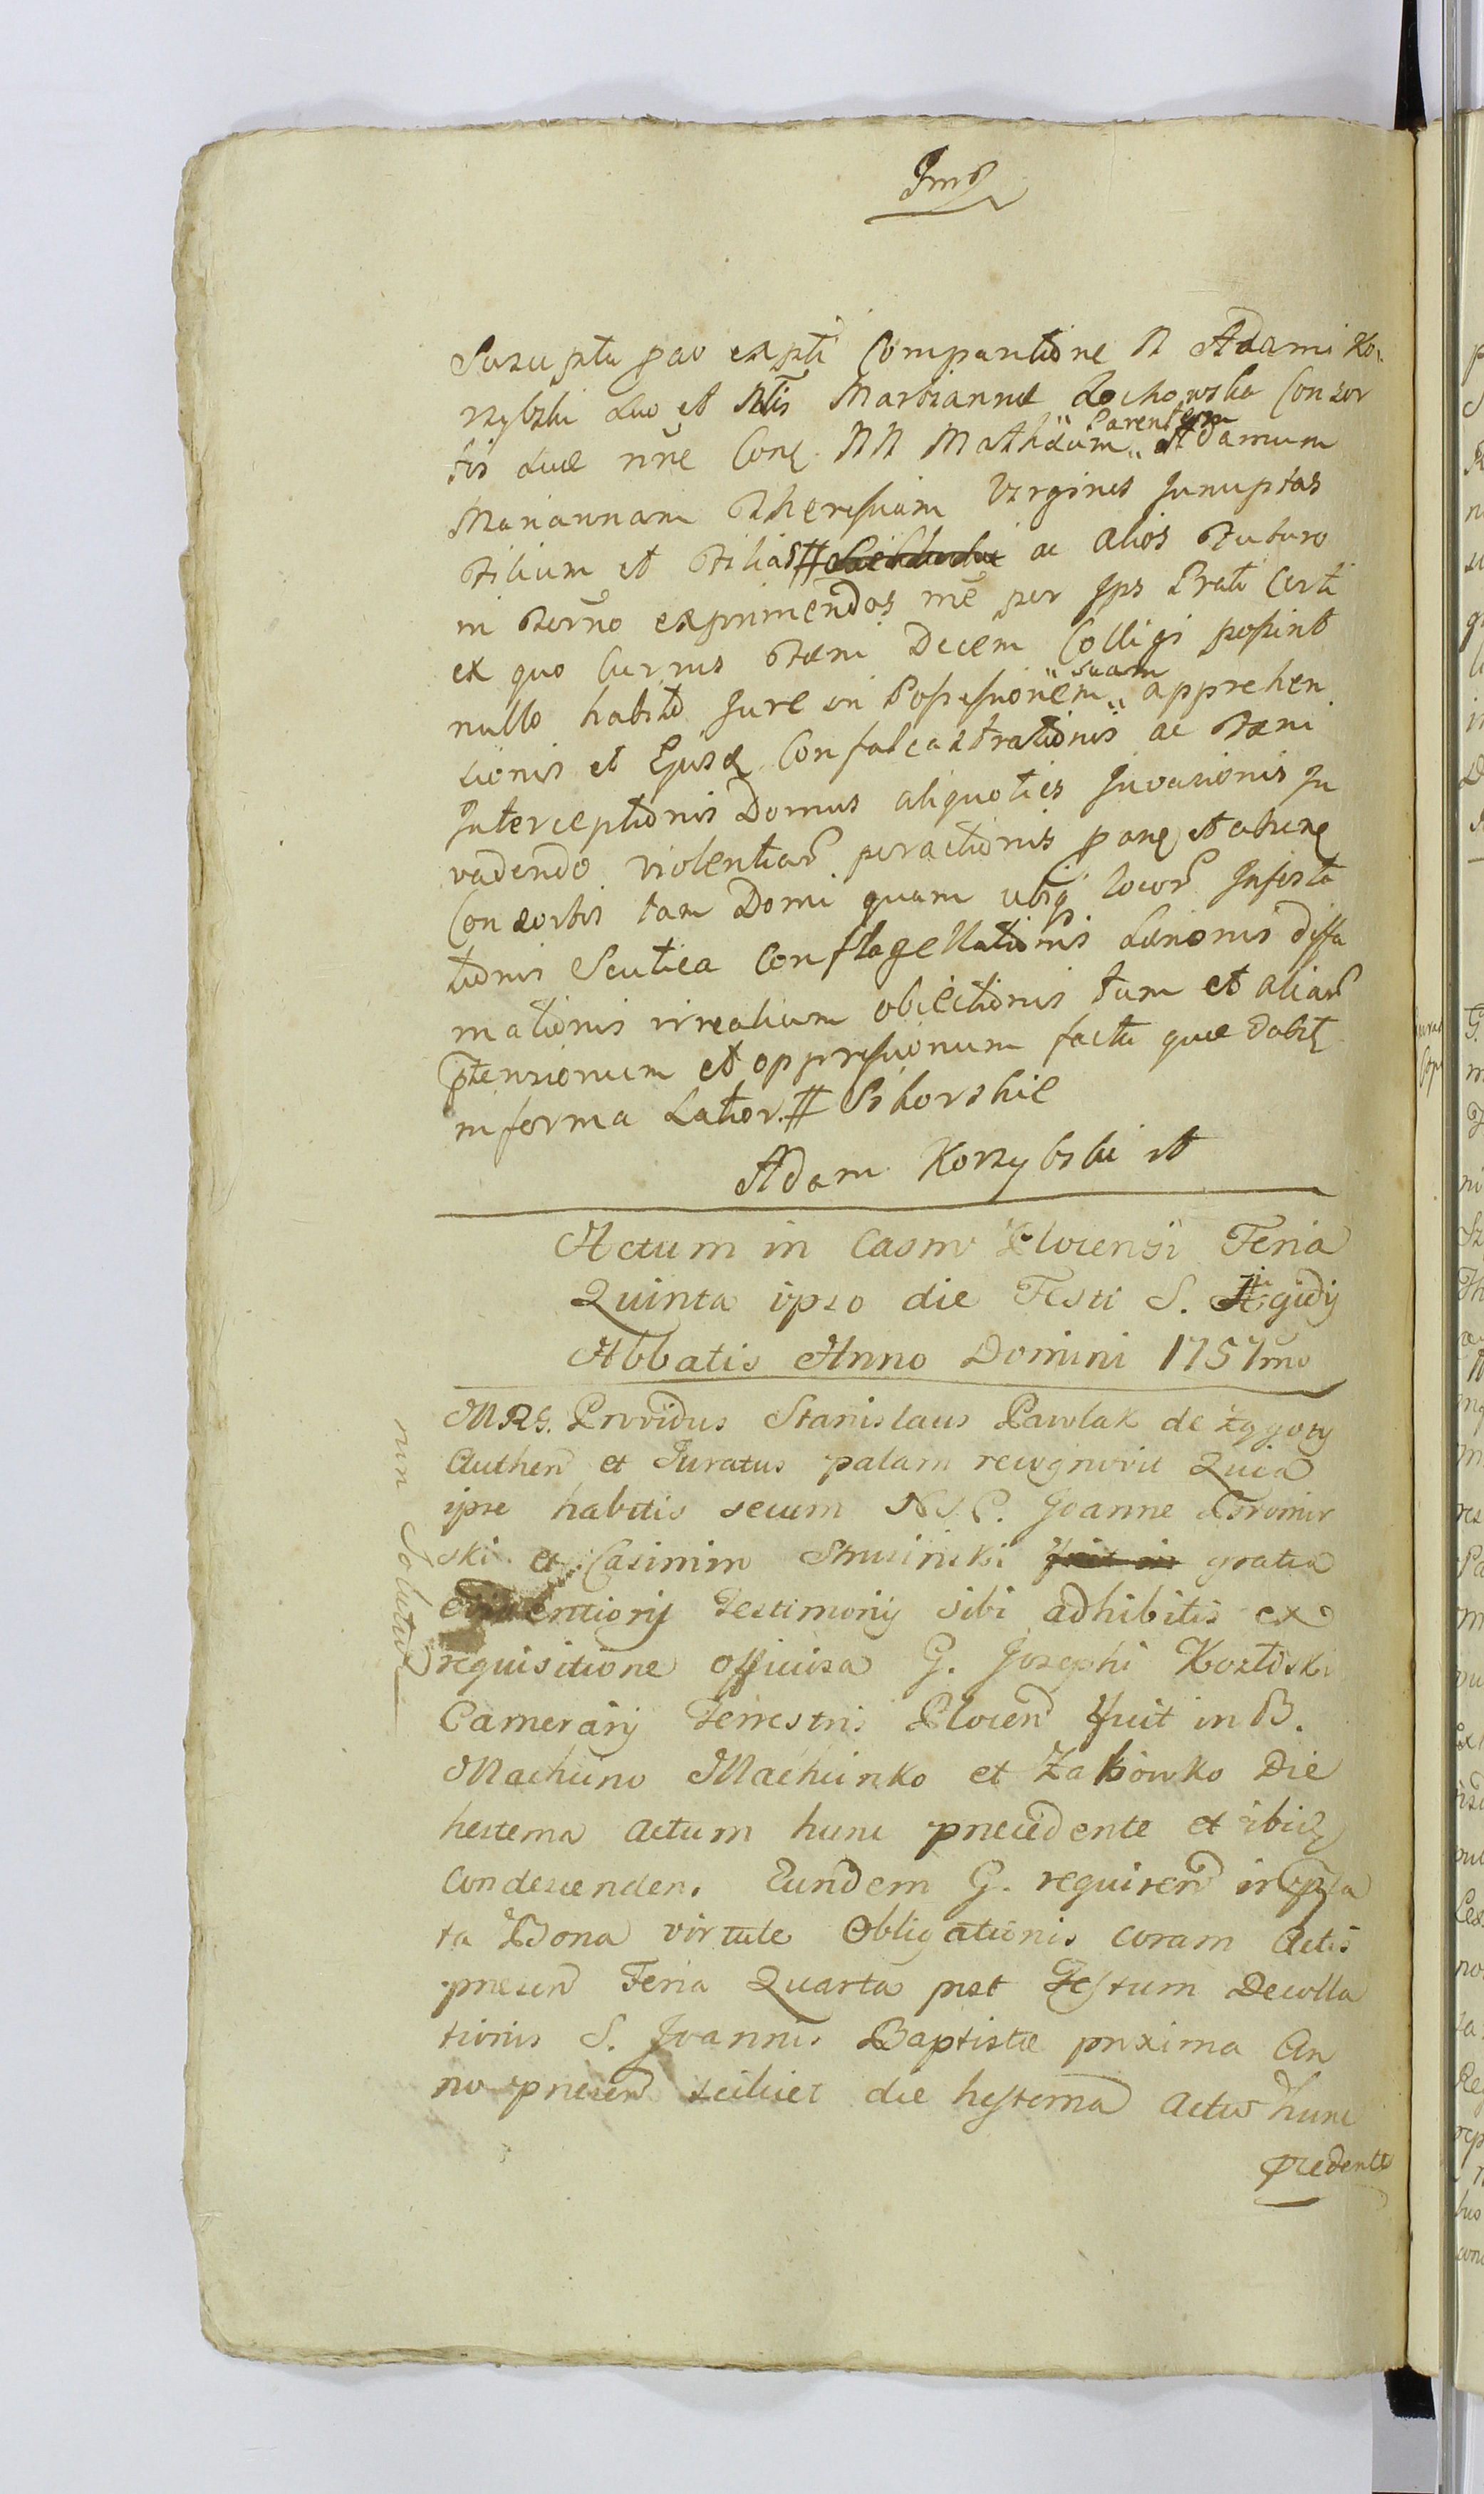 Susceptu pao expti Compantione N Adami Ko:
rzybski suo et Nlis Martiannæ Lochowska Consor
tis suæ nrē Conq. NN Mathæum „Parentem„ Adamum
Mariannam Theressiam Virgines Innuptas
Filium et Filias # ac alios Futuro
in Termō exprimendos mē per Ips Prati Certi
ex quo Currus Fæni Decem Colligi possint
nullo habito Jure in Possessionem „suam„ apprehen
tionis et Ejusq Confalcastrationis ac Fæni
Interceptionis Domus aliquoties Invasionis In
vadendo violentiar peractionis
Consortis tam Domi quam ubiq locor Infesta
tionis Scutica Conflagellationis Lænonis diffa
mationis irrealium obiectionis tum et aliar
ptensionum et oppressionum factu quæ dabit
in forma Lator. # Sikorskie
Adam Korzybski et
Actum in Castro Plocensi Feria
Quinta ipso die Festi S. Ægidij
Abbatis Anno Domini 1757mo
MRS. Providus Stanislaus Pawlak de Zągoty
Authen et Juratus palam recognovit Quia
ipse habitis secum N.S.P. Joanne Stromir
ski et Casimiro Strusinski gratia
evidentiorij Testimonij sibi adhibitis ex
requisitione officiosa G. Josephi Kozłoski
Camerarij Terrestris Plocen fuit in B.
Machcino Machcinko et Zakowko Die
hesterna actum hunc precedente et ibid
condescenden. Eundem G. requiren in psta
ta Bona virtute Obligationis coram Actis
presen Feria Quarta post Festum Decolla
tionis S. Joannis Baptistæ proxima An
no presen scilicet die hesterna actu hunc
precedente
non Solutum